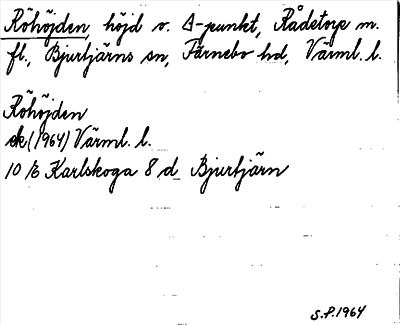 Röhöjden, höjd o. Δ-punkt, Rådetorp m.
fl., Bjurtjärns sn, Färnebo hd, Värml. l.
Röhöjden
ek (1964) Värml. l.
10 E Karlskoga 8 d Bjurtjärn
S.P. 1964